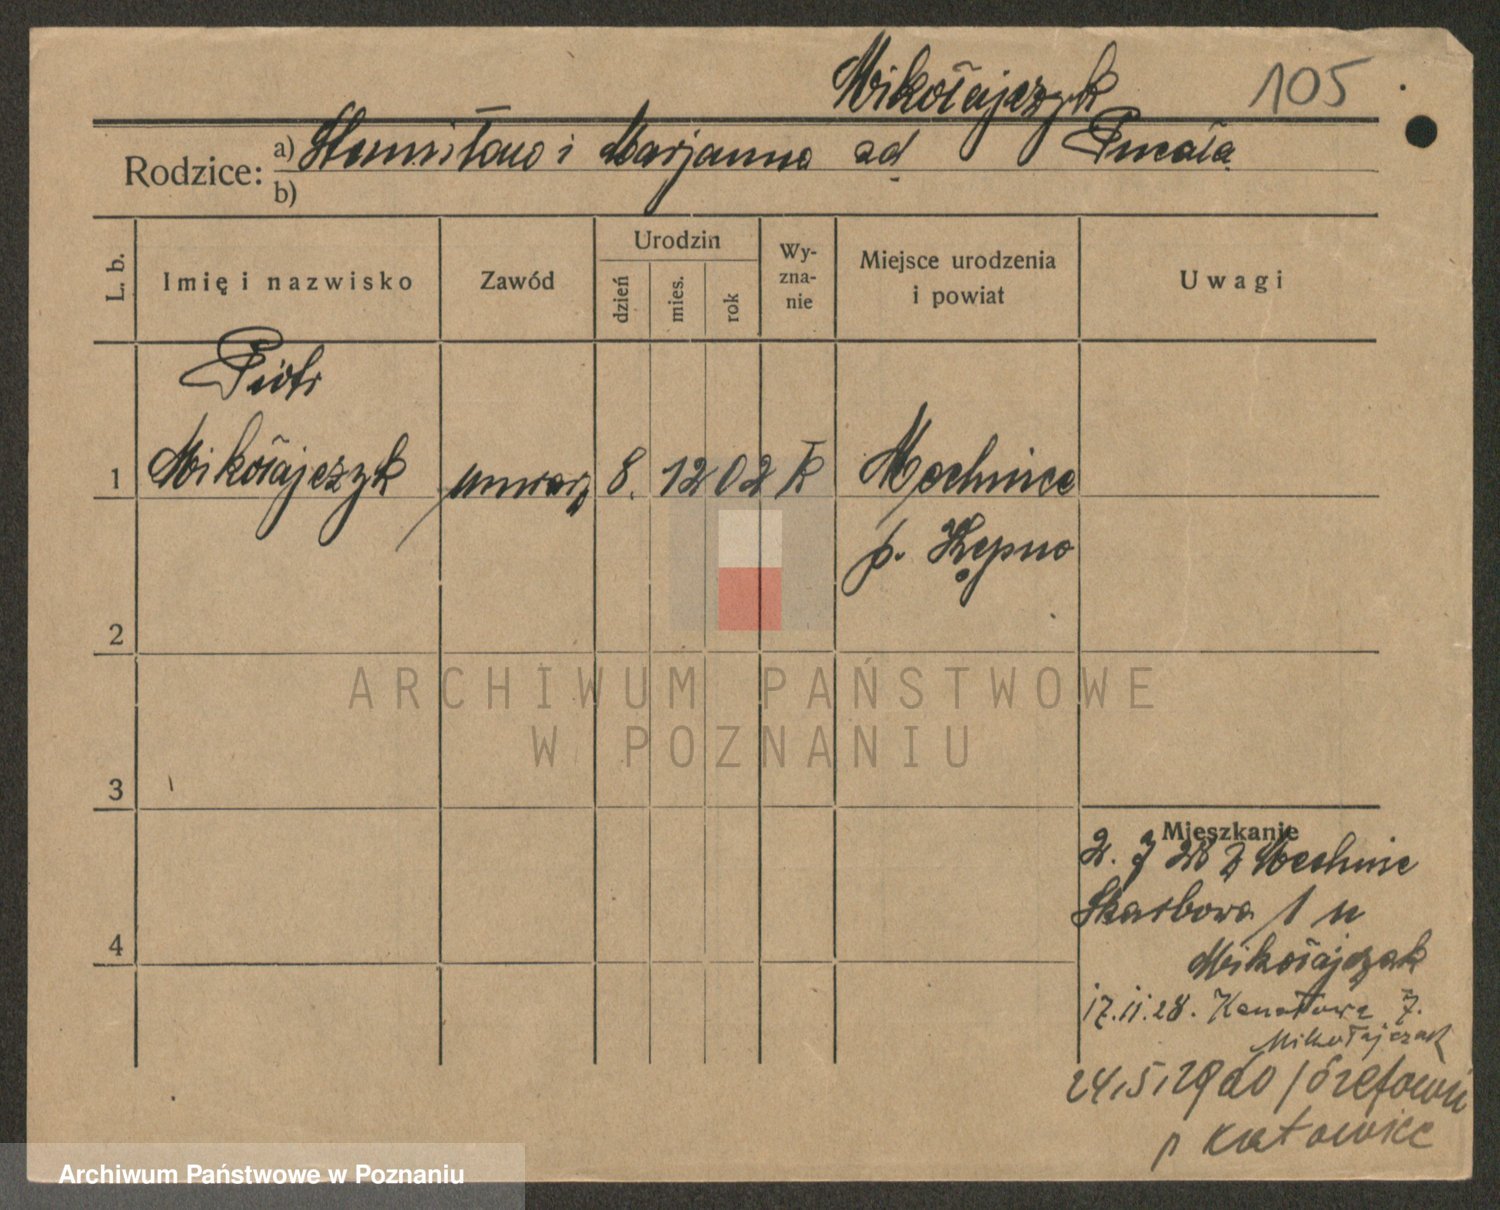 Mikołajczyk 105
Rodzice: a) Stanisław i Marjanna ad Pucała
b)
L. b. Imię i nazwisko Zawód Urodzin dzień mies. rok Wy-zna-nie Miejsce urodzenia i powiat Uwagi
Piotr
1 Mikołajczyk 8. 12 02 k Mechnice
p. Kępno
2
ARCHIWUM PAŃSTWOWE
W POZNANIU
3
Mieszkanie
2. 7 28 z Mechnic
4 Skarbowa 1 u
Mikołajczak
17.11.28. Kanałowa 7.
Mikołajczak
24,5,29 do Józefowa
p Katowice
Archiwum Państwowe w Poznaniu